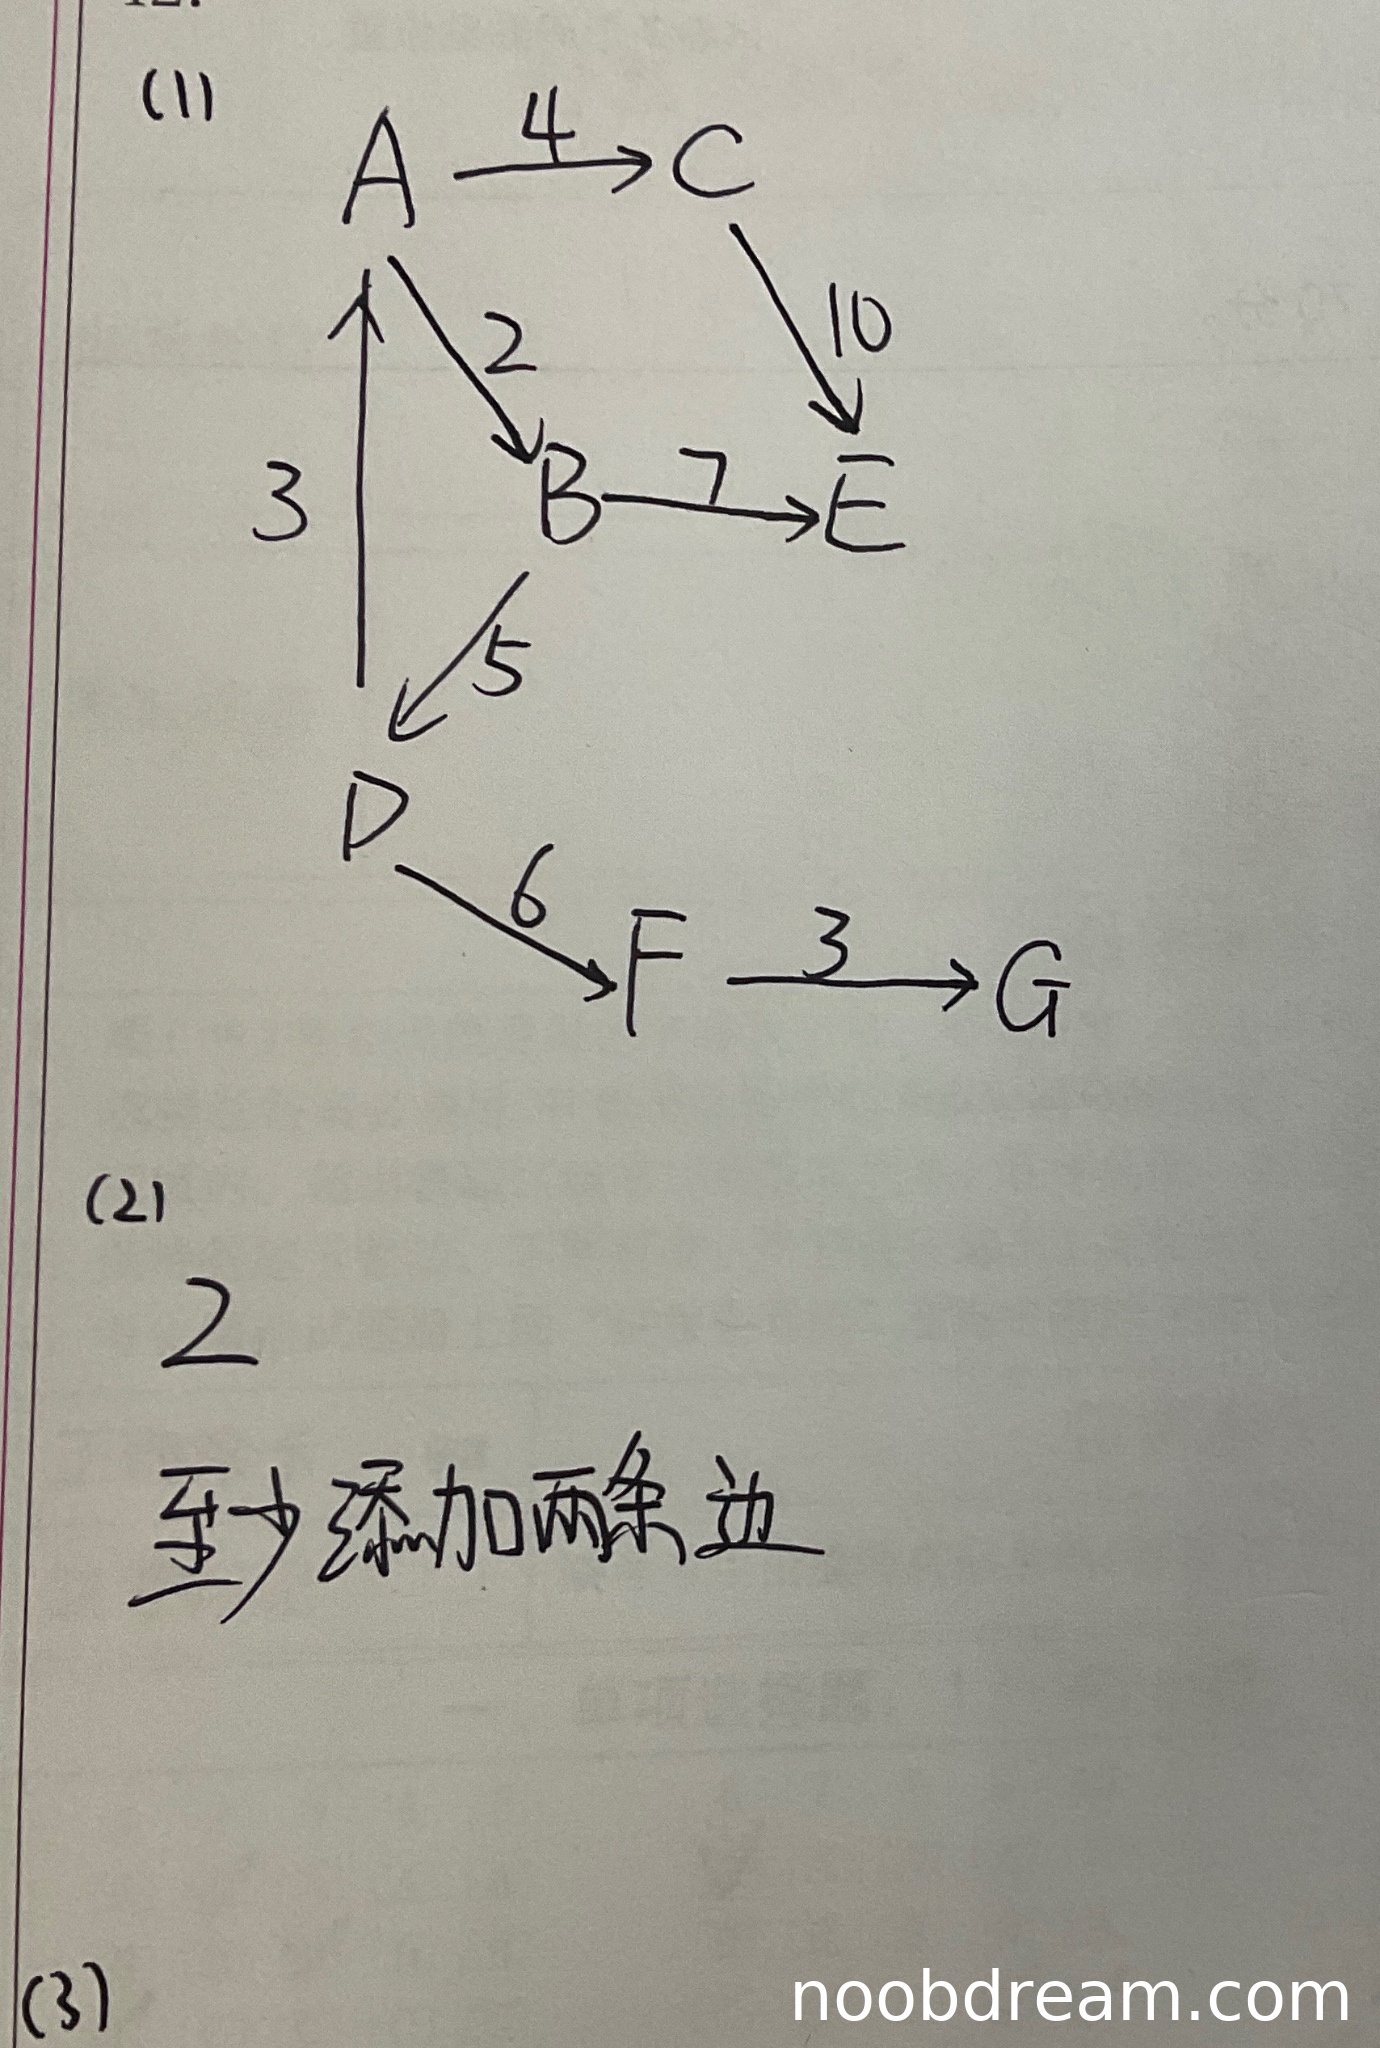 (1)
A 4 C
2 10
3 B 7 E
5
D
6 F 3 G
(2)
2
至少添加两条边
(3)
noobdream.com